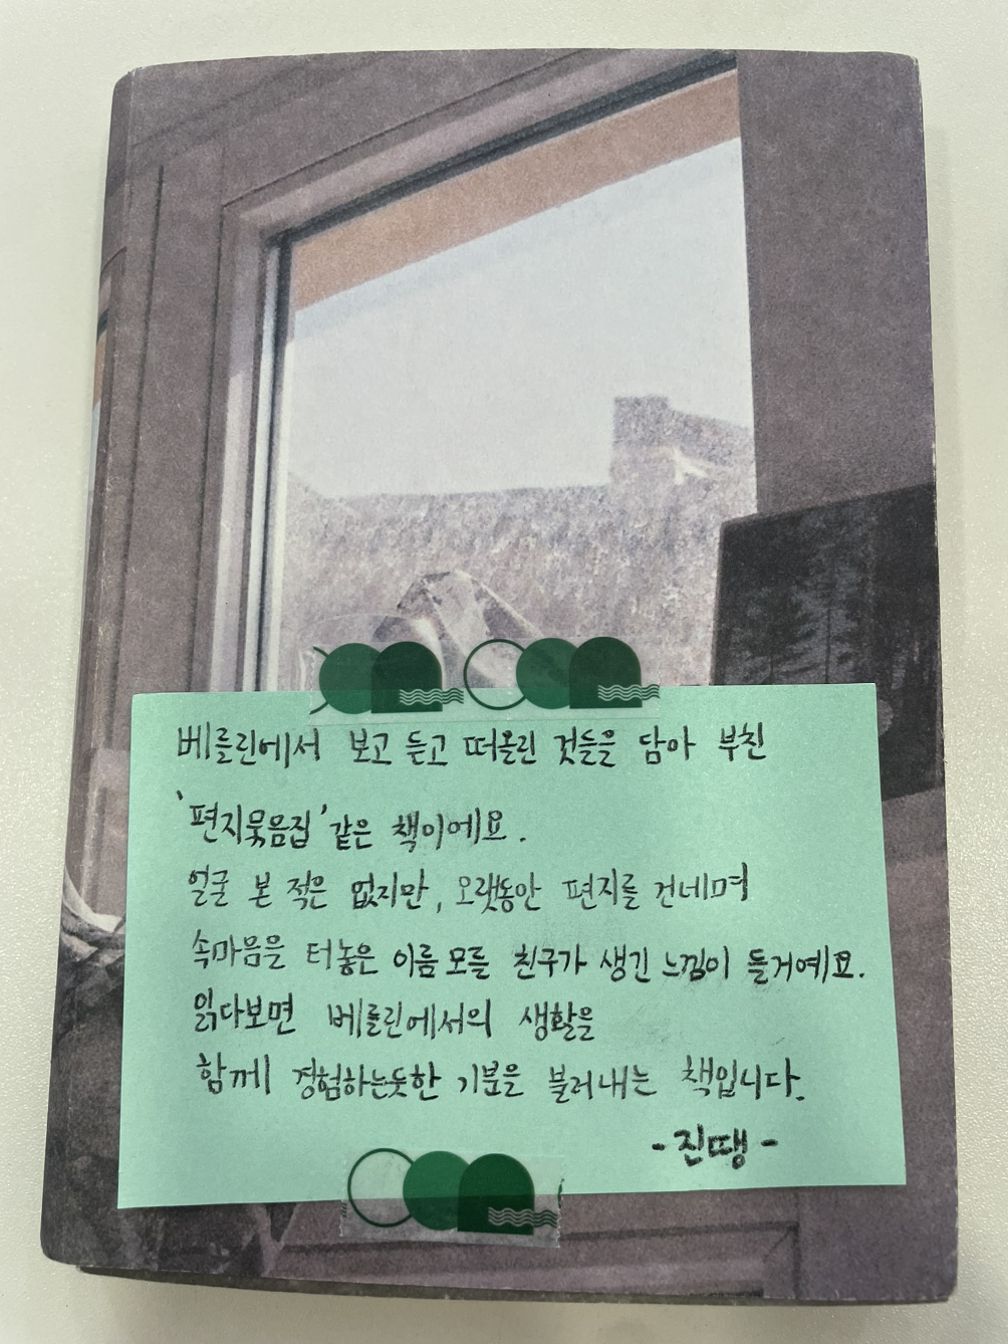 베를린에서 보고 듣고 떠올린 것들을 담아 부친
'편지묶음집' 같은 책이에요.
얼굴 본 적은 없지만, 오랫동안 편지를 건네며
속마음은 터놓은 이름 모를 친구가 생긴 느낌이 들거예요.
읽다보면 베를린에서의 생활을
함께 경험하는듯한 기분을 불러내는 책입니다.
-진땡-